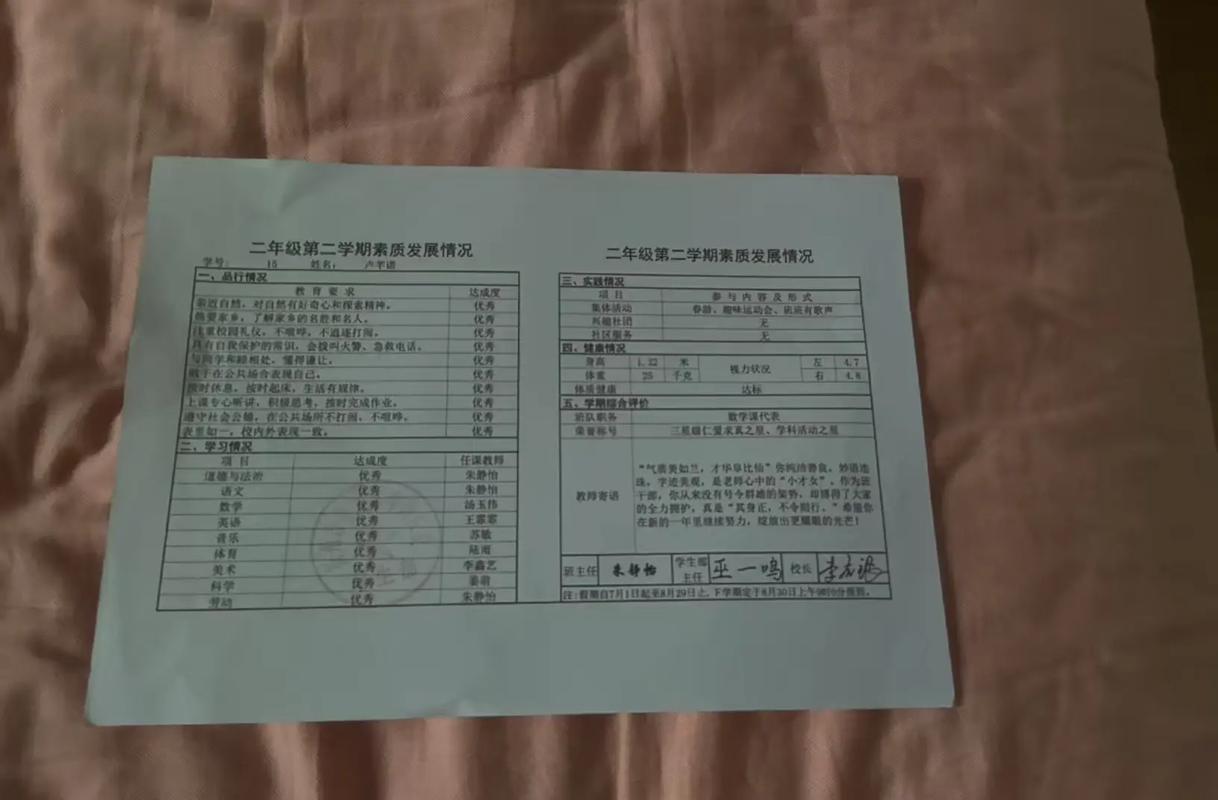 二年级第二学期素质发展情况
学号： 15 姓名： 卢芊诺
一、品行情况
教育要求 达成度
亲近自然，对自然有好奇心和探索精神。 优秀
热爱家乡，了解家乡的名胜和名人。 优秀
注重校园礼仪，不喧哗，不追逐打闹。 优秀
具有自我保护的常识，会拨叫火警、急救电话。 优秀
与同学和睦相处，懂得谦让。 优秀
敢于在公共场合表现自己。 优秀
按时休息，按时起床，生活有规律。 优秀
上课专心听讲，积极思考，按时完成作业。 优秀
遵守社会公德，在公共场所不打闹，不喧哗。 优秀
表里如一，校内外表现一致。 优秀
二、学习情况
项目 达成度 任课教师
道德与法治 优秀 朱静怡
语文 优秀 朱静怡
数学 优秀 汤玉伟
英语 优秀 王霏霏
音乐 优秀 苏敏
体育 优秀 陆雨
美术 优秀 李鑫艺
科学 优秀 姜萌
劳动 优秀 朱静怡
二年级第二学期素质发展情况
三、实践情况
项目 参与内容及形式
集体活动 春游、趣味运动会、班班有歌声
兴趣社团 无
社区服务 无
四、健康情况
身高 1.32 米 视力状况 左 4.7
体重 25 千克 右 4.8
体质健康 达标
五、学期综合评价
班队职务 数学课代表
荣誉称号 三星级仁爱求真之星、学科活动之星
教师寄语
“气质美如兰，才华阜比仙”你纯洁善良，妙语连
珠，字迹美观，是老师心中的“小才女”。作为班
干部，你从来没有号令群雄的架势，却博得了大家
的全力拥护，真是“其身正，不令而行。”希望你
在新的一年里继续努力，绽放出更耀眼的光芒！
班主任 朱静怡 学生部主任 巫一鸣 校长
注：假期自7月1日起至8月29日止，下学期定于8月30日上午9时0分报到。